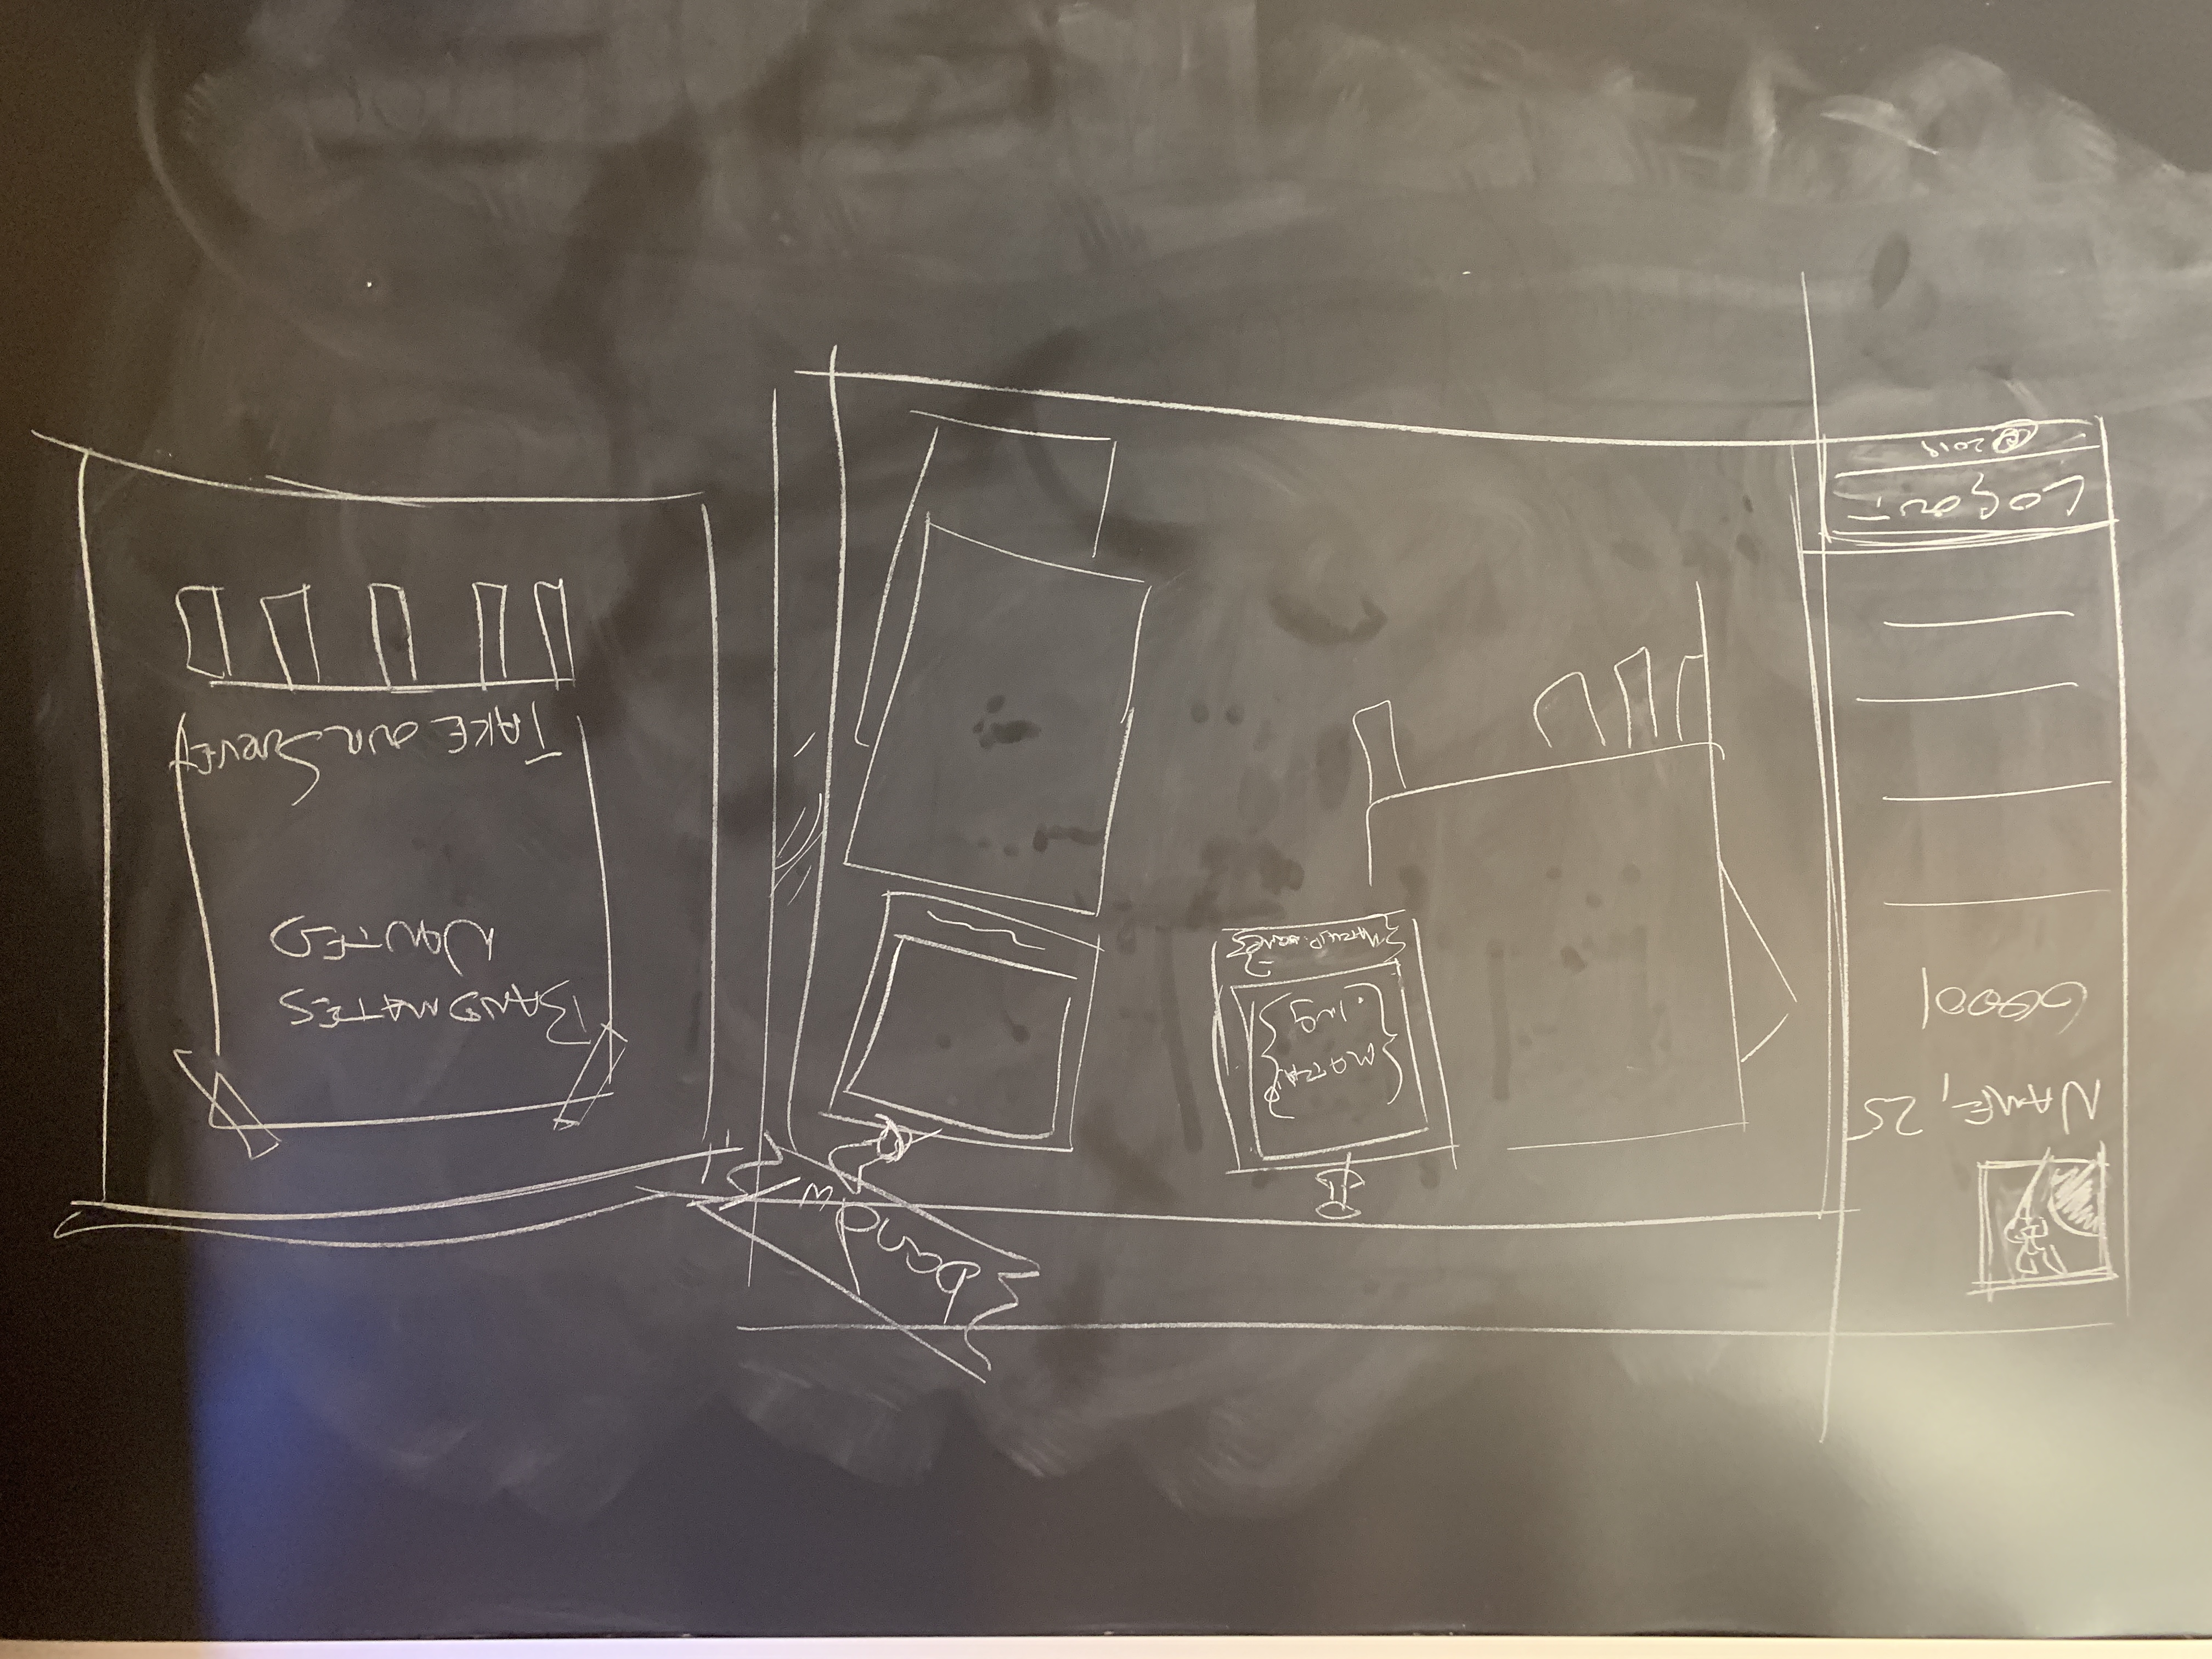 NAME, 25
60001
LOGOUT
© 2019
band
{MATCHUP
.img}
{MATCHUP.NAME}
BANDMATES
WANTED
TAKE OUR SURVEY